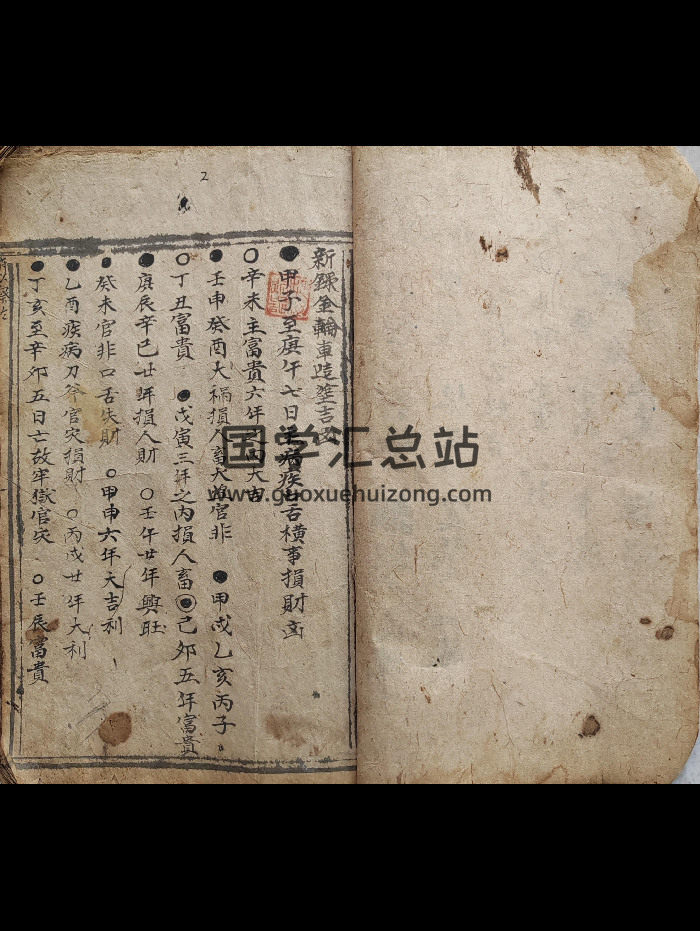 2
新錄金輪車造塟吉凶
●甲子至庚午七日主病疾口舌橫事損財凶
○辛未主富貴六年之內大吉
●壬申癸酉大禍損人畜大凶官非 ●甲戌乙亥丙子
○丁丑富貴 ●戊寅三年之內損人畜 ●己卯五年富貴
●庚辰辛巳廿年損人財 ○壬午廿年興旺
●癸未官非口舌失財 ○甲申六年大吉利
●乙酉疾病刀斧官灾損財 ○丙戌廿年大利
●丁亥至辛卯五日亡故牢獄官灾 ○壬辰富貴
国学汇总站
www.guoxuehuizong.com